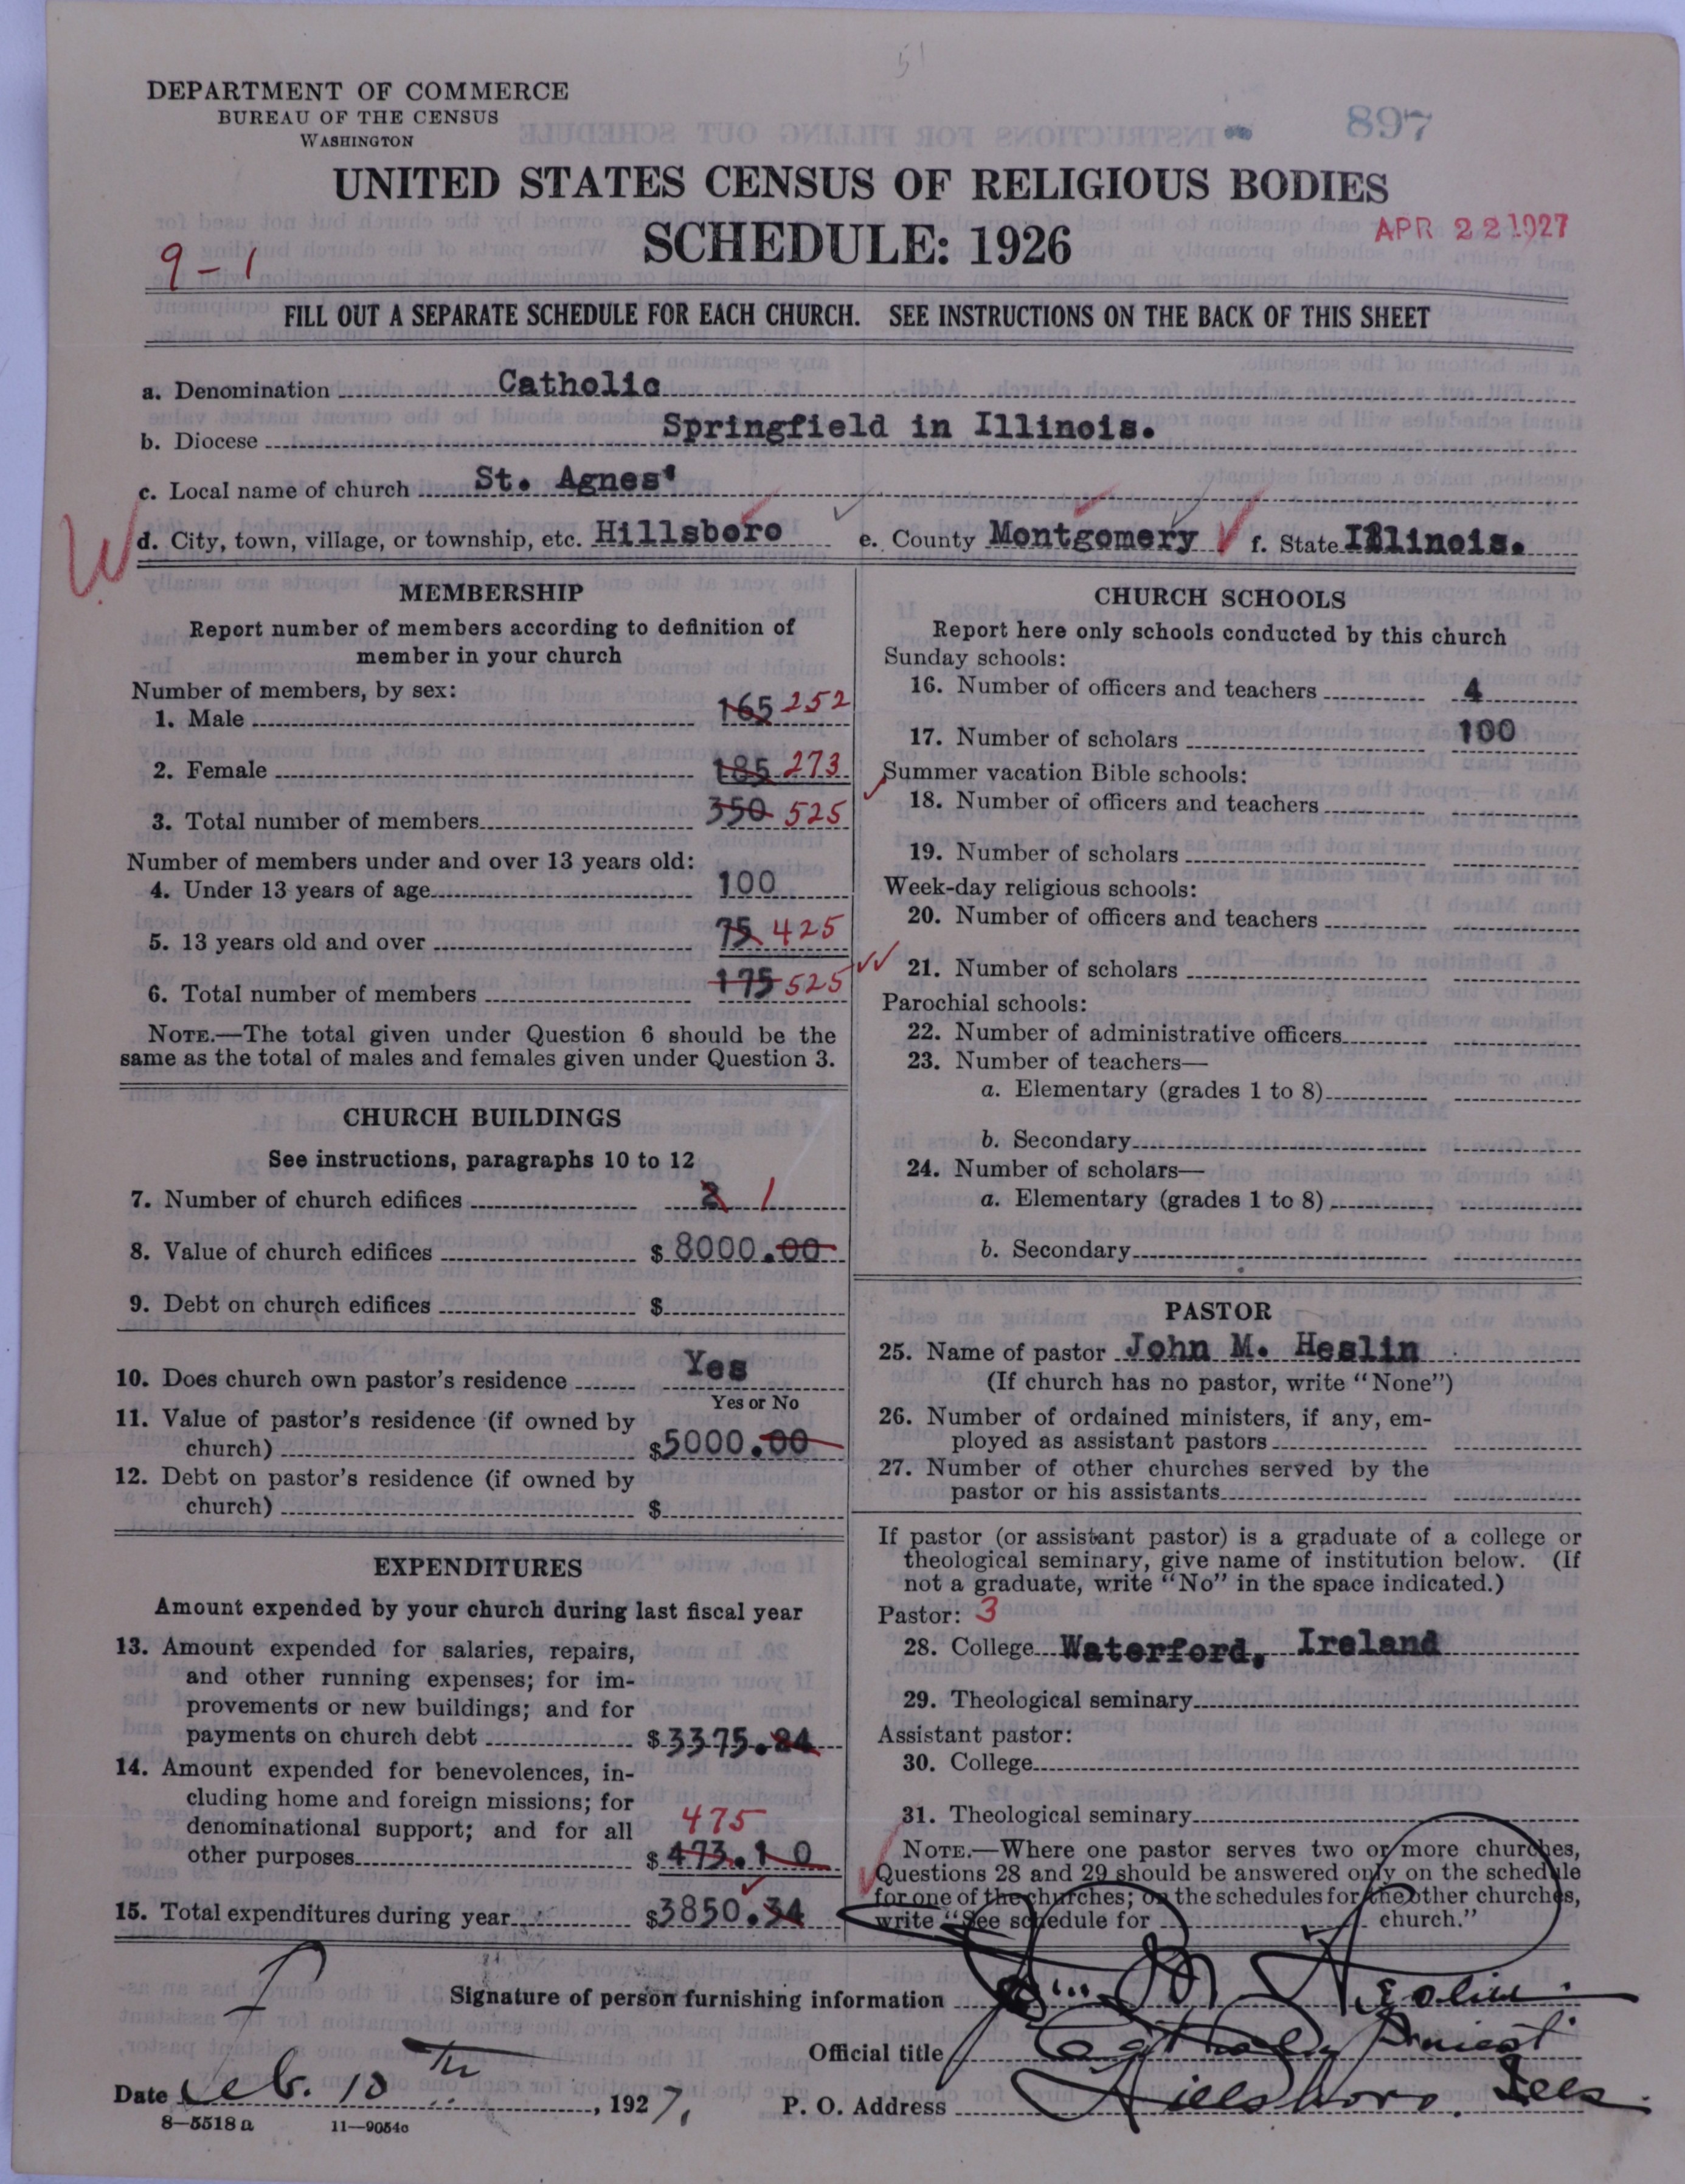 51
DEPARTMENT OF COMMERCE
BUREAU OF THE CENSUS
WASHINGTON
897
UNITED STATES CENSUS OF RELIGIOUS BODIES
SCHEDULE: 1926
APR 22 1927
9-1
FILL OUT A SEPARATE SCHEDULE FOR EACH CHURCH. SEE INSTRUCTIONS ON THE BACK OF THIS SHEET
a. Denomination Catholic
b. Diocese Springfield in Illinois.
c. Local name of church St. Agnes'
W d. City, town, village, or township, etc. Hillsboro e. County Montgomery f. State Illinois.
MEMBERSHIP
Report number of members according to definition of
member in your church
Number of members, by sex:
1. Male 165 252
2. Female 185 273
3. Total number of members 350 525
Number of members under and over 13 years old:
4. Under 13 years of age 100
5. 13 years old and over 75 425
6. Total number of members 175 525
NOTE.—The total given under Question 6 should be the
same as the total of males and females given under Question 3.
CHURCH BUILDINGS
See instructions, paragraphs 10 to 12
7. Number of church edifices 2 1
8. Value of church edifices $8000.00
9. Debt on church edifices $
10. Does church own pastor's residence Yes
Yes or No
11. Value of pastor's residence (if owned by
church) $5000.00
12. Debt on pastor's residence (if owned by
church) $
EXPENDITURES
Amount expended by your church during last fiscal year
13. Amount expended for salaries, repairs,
and other running expenses; for im-
provements or new buildings; and for
payments on church debt $3375.24
14. Amount expended for benevolences, in-
cluding home and foreign missions; for
denominational support; and for all 475
other purposes $473.10
15. Total expenditures during year $3850.34
CHURCH SCHOOLS
Report here only schools conducted by this church
Sunday schools:
16. Number of officers and teachers 4
17. Number of scholars 100
Summer vacation Bible schools:
18. Number of officers and teachers
19. Number of scholars
Week-day religious schools:
20. Number of officers and teachers
21. Number of scholars
Parochial schools:
22. Number of administrative officers
23. Number of teachers—
a. Elementary (grades 1 to 8)
b. Secondary
24. Number of scholars—
a. Elementary (grades 1 to 8)
b. Secondary
PASTOR
25. Name of pastor John M. Heslin
(If church has no pastor, write "None")
26. Number of ordained ministers, if any, em-
ployed as assistant pastors
27. Number of other churches served by the
pastor or his assistants
If pastor (or assistant pastor) is a graduate of a college or
theological seminary, give name of institution below. (If
not a graduate, write "No" in the space indicated.)
Pastor: 3
28. College Waterford, Ireland
29. Theological seminary
Assistant pastor:
30. College
31. Theological seminary
NOTE.—Where one pastor serves two or more churches,
Questions 28 and 29 should be answered only on the schedule
for one of the churches; on the schedules for the other churches,
write "See schedule for church."
Signature of person furnishing information Jno. M. Heslin
Official title Catholic Priest
Date Feb. 10th, 1927. P. O. Address Hillsboro. Ills.
8—5518a 11—9054c